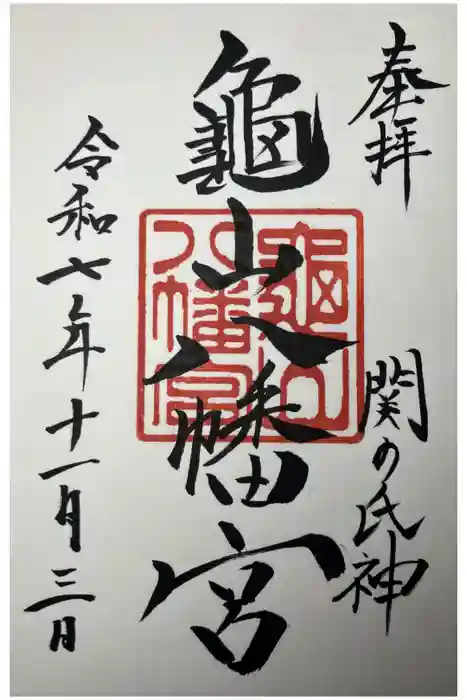 奉拝
関の氏神
龜山八幡宮
龜山八幡宮
令和七年十一月三日